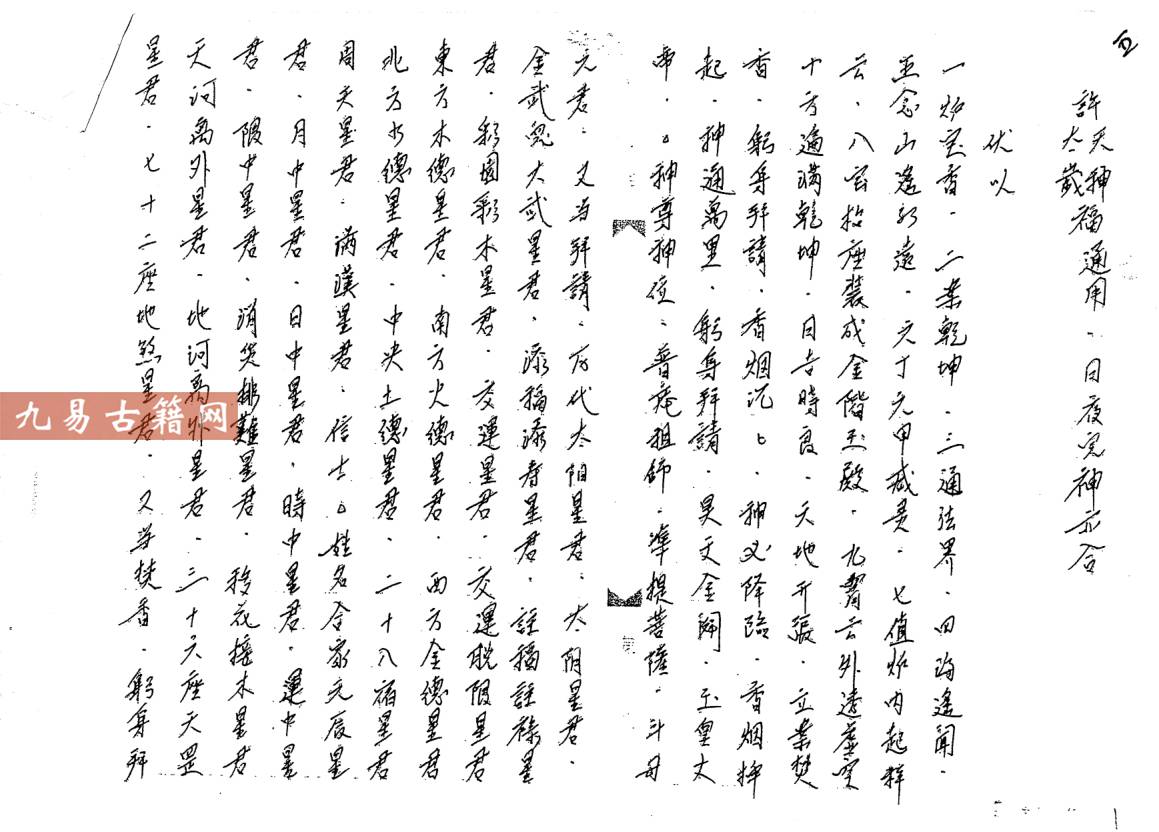 五
許天神福通用、日夜完神亦合
太歲
伏以
一炉宝香．二案乾坤．三通法界．四海遙聞．
五念山遙 遠．六丁六甲减灵．七值炉内起祥
云．八宝 座裝成金階玉殿．九霄云外透虛空
十方遍满乾坤．日吉時良．天地开張．立案焚
香．躬身拜請．香烟沉沉．神必降臨．香烟捧
起．神通萬里．躬身拜請．昊天金闕．玉皇大
帝．神尊神位．普庵祖師．準提菩薩．斗母
元君．又当拜請．古代太阳星君．太阴星君．
金武 大武星君．添福添寿星君．註福註禄星
君．移園移木星君．交運星君．交運脱限星君
東方木德星君．南方火德星君．西方金德星君
北方水德星君．中央土德星君．二十八宿星君
周天星君．满漢星君．信士 姓名合家元辰星
君．月中星君．日中星君．時中星君．運中星
君．限中星君．消災排難星君．移花接木星君
天河离外星君．地河离外星君．三十六座天罡
星君．七十二座地煞星君．又当焚香．躬身拜
九易古籍网